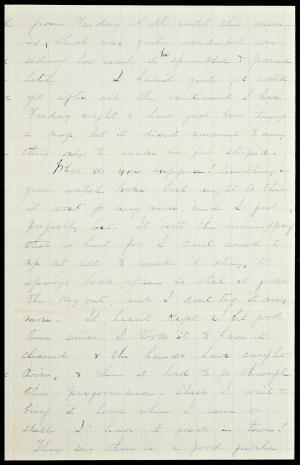 from Friday A.M. until this morn-
ing, which was quite wonderful con-
sidering how easily it sprinkled & poured
lately. I haven't quite got rested
yet after all the excitement I had
Friday night & have just been trying
a nap but it didn't amount to any
thing only to make me feel stupid.
What do you suppose! Something in
your watch broke last night so that
it wont go any more and I feel
perfectly lost. It isn't the main-spring
that is hurt for I can't wind it
up at all & make it stay, it
springs back again so that it jerks
the key out, and I don't try it any
more. It hasn't kept a bit good
time since I took it to have it
cleaned, & the hands have caught
twice, & then it had to go through
this performance. Shall I wait &
bring it home when I come or
shall I have it fixed in town?
They say there is a good jeweler